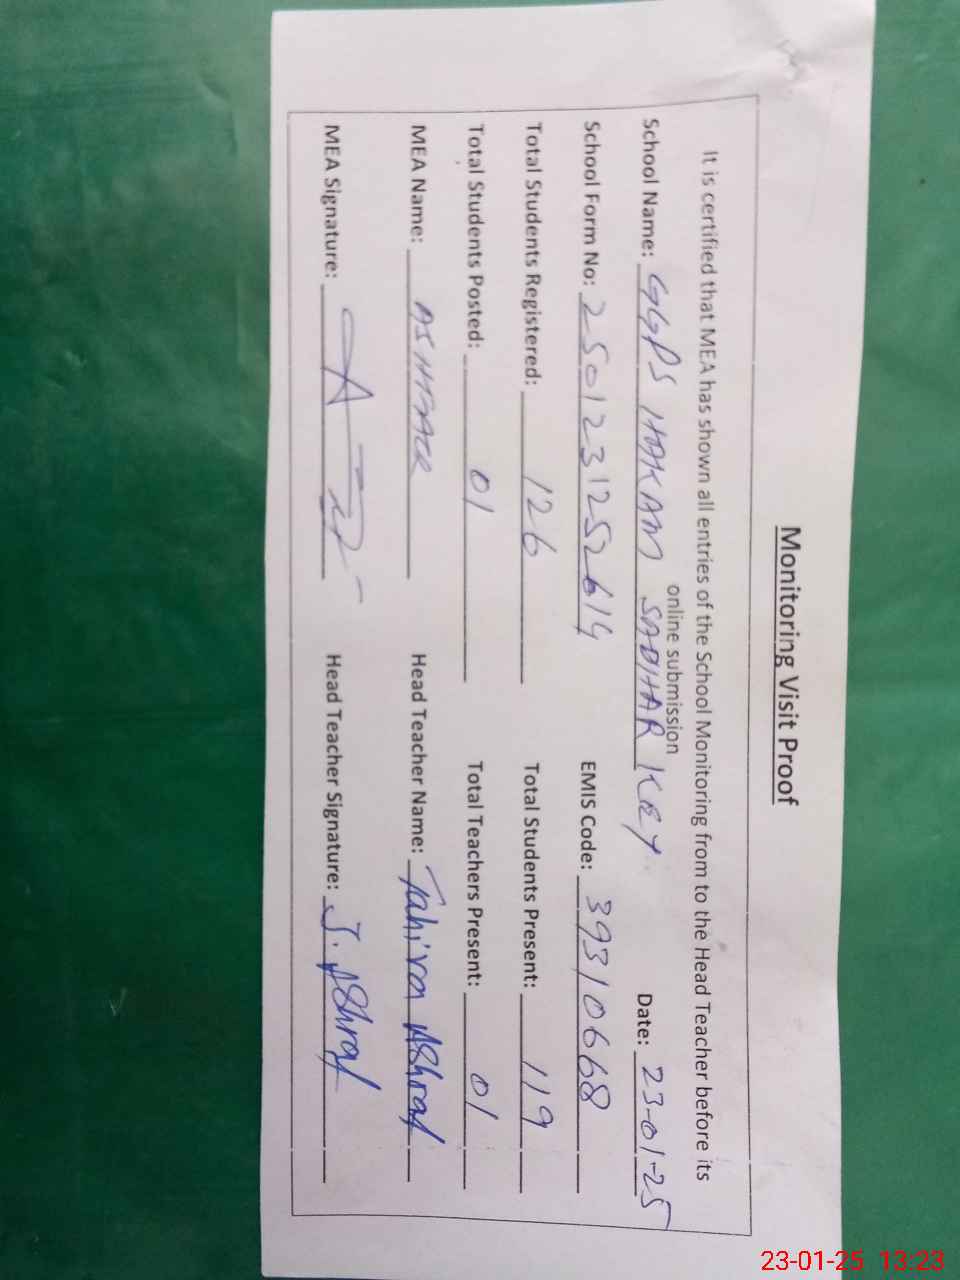 Monitoring Visit Proof
It is certified that MEA has shown all entries of the School Monitoring from to the Head Teacher before its
online submission
School Name: GGPS HAKAM SADHAR KEY Date: 23-01-25
School Form No: 2501231252614 EMIS Code: 39310668
Total Students Registered: 126 Total Students Present: 119
Total Students Posted: 01 Total Teachers Present: 01
MEA Name: Head Teacher Name: Tahira Ashraf
MEA Signature: Head Teacher Signature: T. Ashraf
23-01-25 13:23